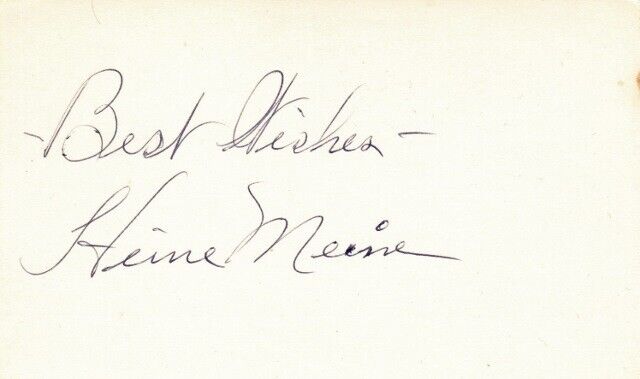 -Best Wishes-
Heine Meine